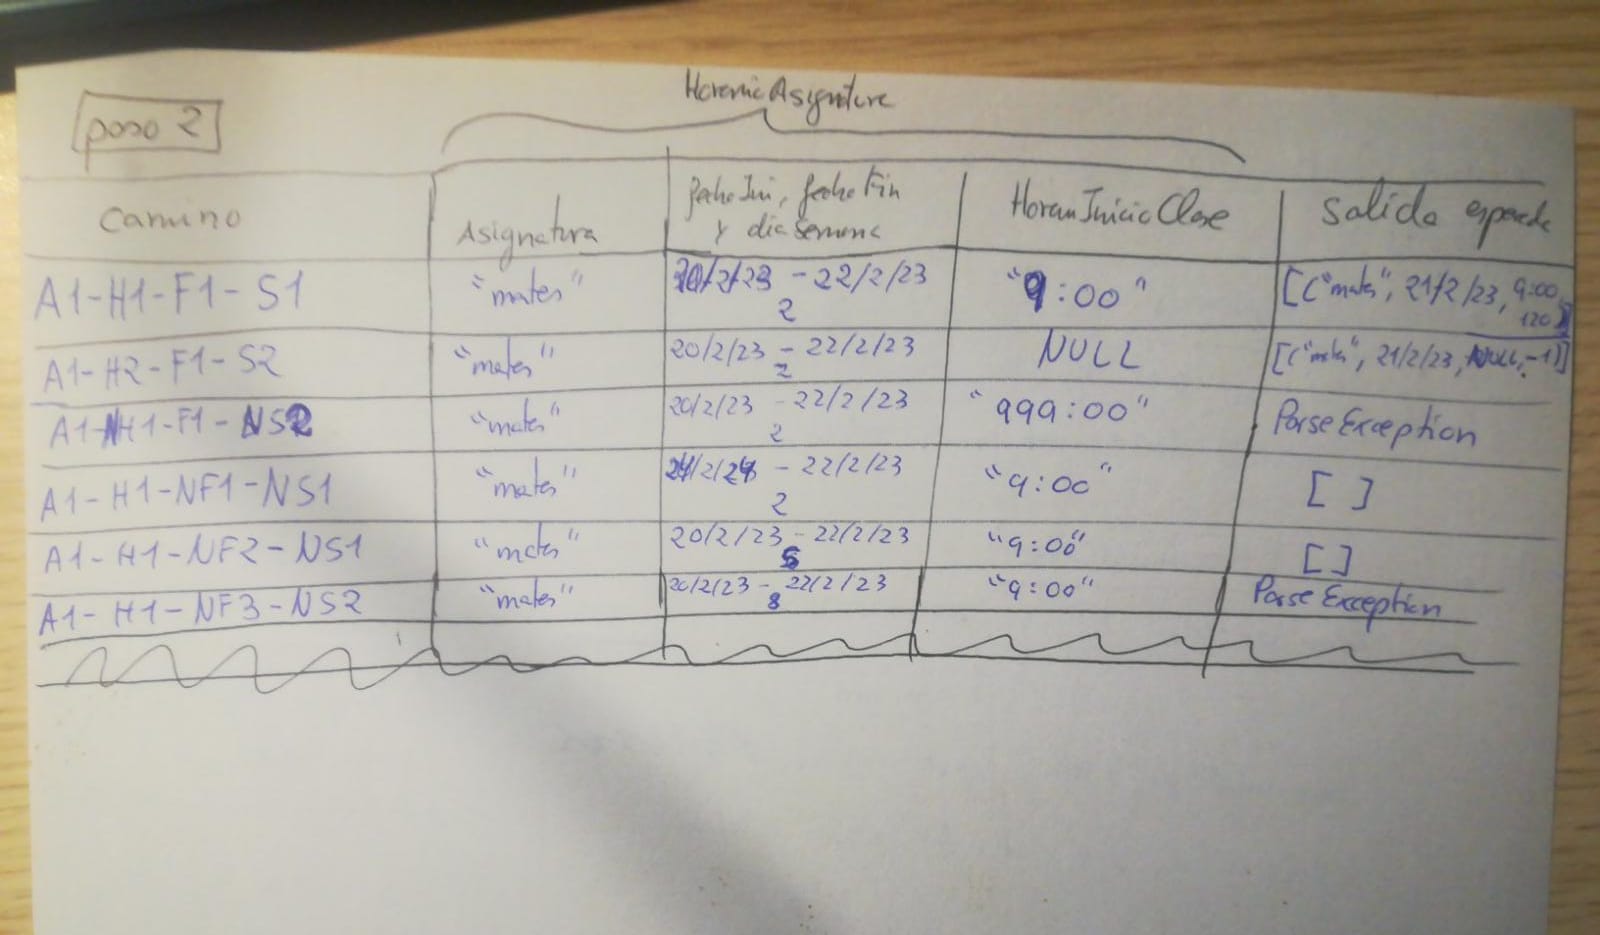 HorarioAsignatura
paso 2
Camino
Asignatura
fechaIni, fechaFin
y dia Semana
HoraInicioClase
Salida esperada
A1-H1-F1-S1
"mates"
20/2/23 - 22/2/23
2
"9:00"
[("mates", 21/2/23, 9:00,
120)]
A1-H2-F1-S2
"mates"
20/2/23 - 22/2/23
2
NULL
[("mates", 21/2/23, NULL, -1)]
A1-NH1-F1-NS2
"mates"
20/2/23 - 22/2/23
2
"999:00"
ParseException
A1-H1-NF1-NS1
"mates"
- 22/2/23
2
"9:00"
[ ]
A1-H1-NF2-NS1
"mates"
20/2/23 - 22/2/23
"9:00"
[ ]
A1-H1-NF3-NS2
"mates"
20/2/23 - 22/2/23
8
"9:00"
ParseException